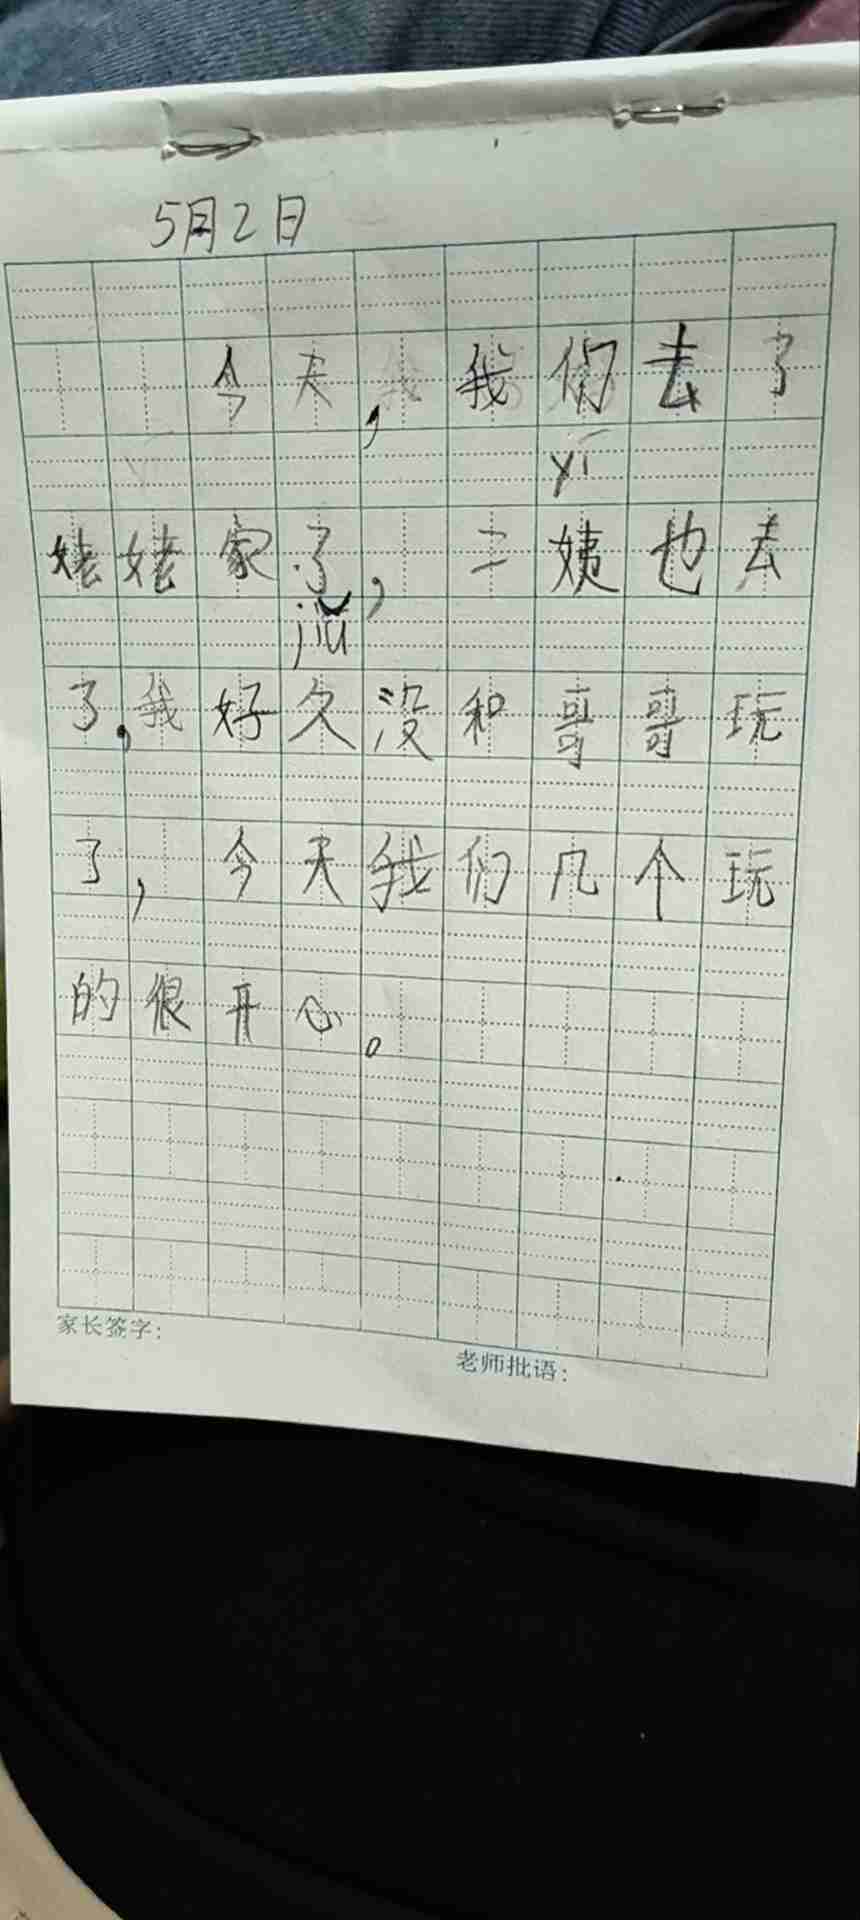 5月2日
今天,我们去了
yí
姥姥家了,二姨也去
jiǔ
了,我好久没和哥哥玩
了,今天我们几个玩
的很开心。
家长签字:
老师批语: